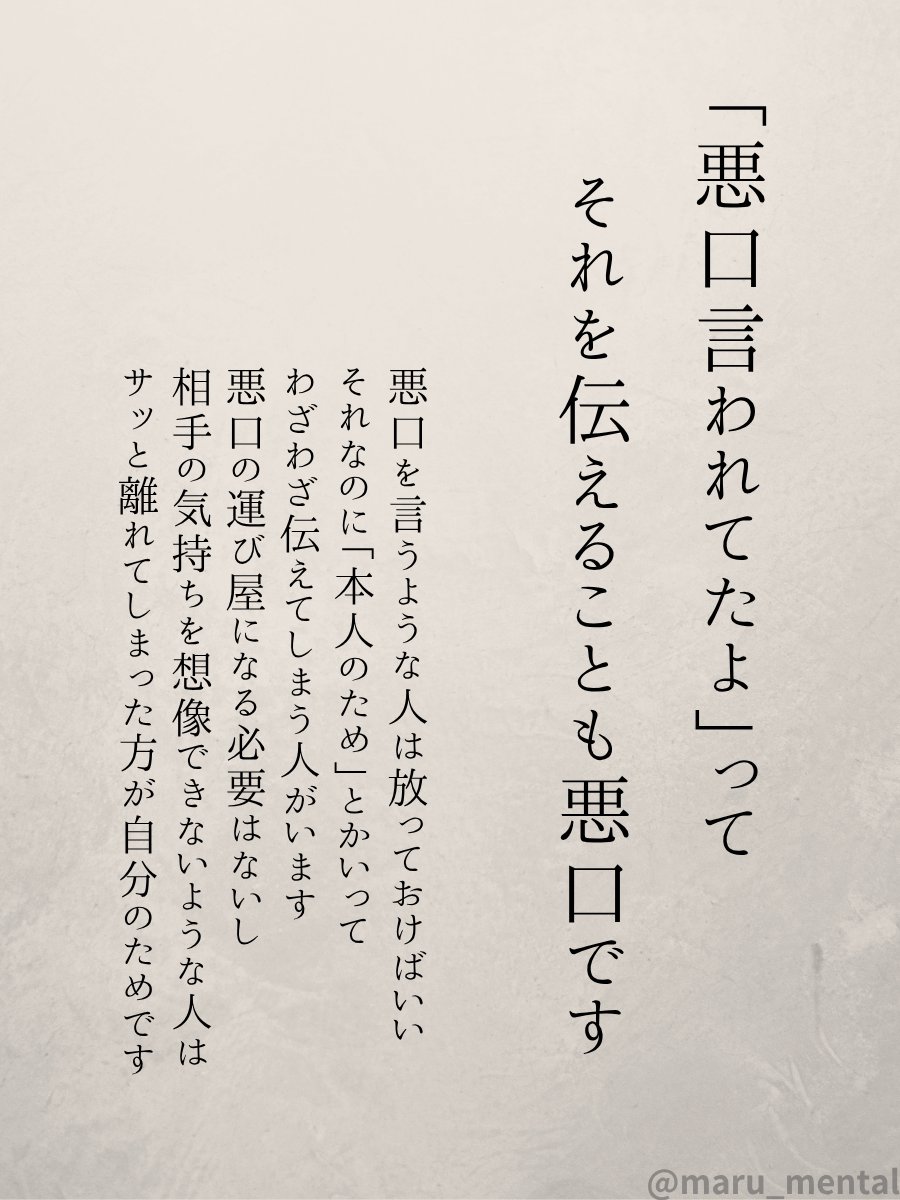 「悪口言われてたよ」って
それを伝えることも悪口です
悪口を言うような人は放っておけばいい
それなのに「本人のため」とかいって
わざわざ伝えてしまう人がいます
悪口の運び屋になる必要はないし
相手の気持ちを想像できないような人は
サッと離れてしまった方が自分のためです
@maru_mental